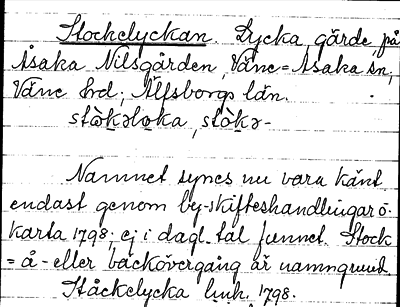 Stockelyckan. Lycka, gärde, på
Åsaka Nilsgården, Väne-Åsaka sn,
Väne hd; Älfsborgs län.
stòkəloka, stòkə-
Namnet synes nu vara känt
endast genom by-skifteshandlingar o.
karta 1798; ej i dagl. tal funnet. Stock
= å- eller bäckövergång är namngrund.
Ståckelycka link. 1798.